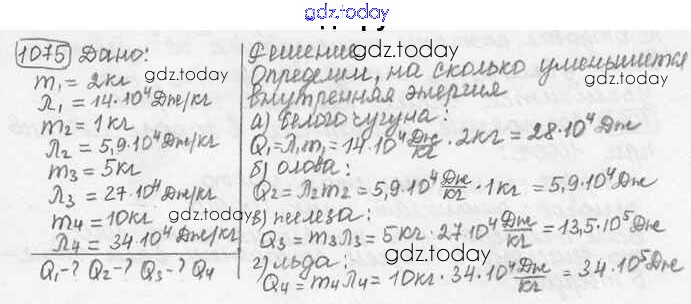 gdz.today
1075 Дано:
m₁=2кг
gdz.today
λ₁=14·10⁴Дж/кг
m₂=1кг
λ₂=5,9·10⁴Дж/кг
gdz.today
m₃=5кг
λ₃=27·10⁴Дж/кг
m₄=10кг
gdz.today
λ₄=34·10⁴Дж/кг
Q₁-? Q₂-? Q₃-? Q₄
Решение
gdz.today
Определим, на сколько уменьшится
внутренняя энергия
gdz.today
а) белого чугуна:
Q₁=λ₁m₁=14·10⁴Дж/кг·2кг=28·10⁴Дж
б) олова:
gdz.today
Q₂=λ₂m₂=5,9·10⁴Дж/кг·1кг=5,9·10⁴Дж
в) железа:
gdz.today
Q₃=m₃λ₃=5кг·27·10⁴Дж/кг=13,5·10⁵Дж
г) льда:
gdz.today
Q₄=m₄λ₄=10кг·34·10⁴Дж/кг=34·10⁵Дж